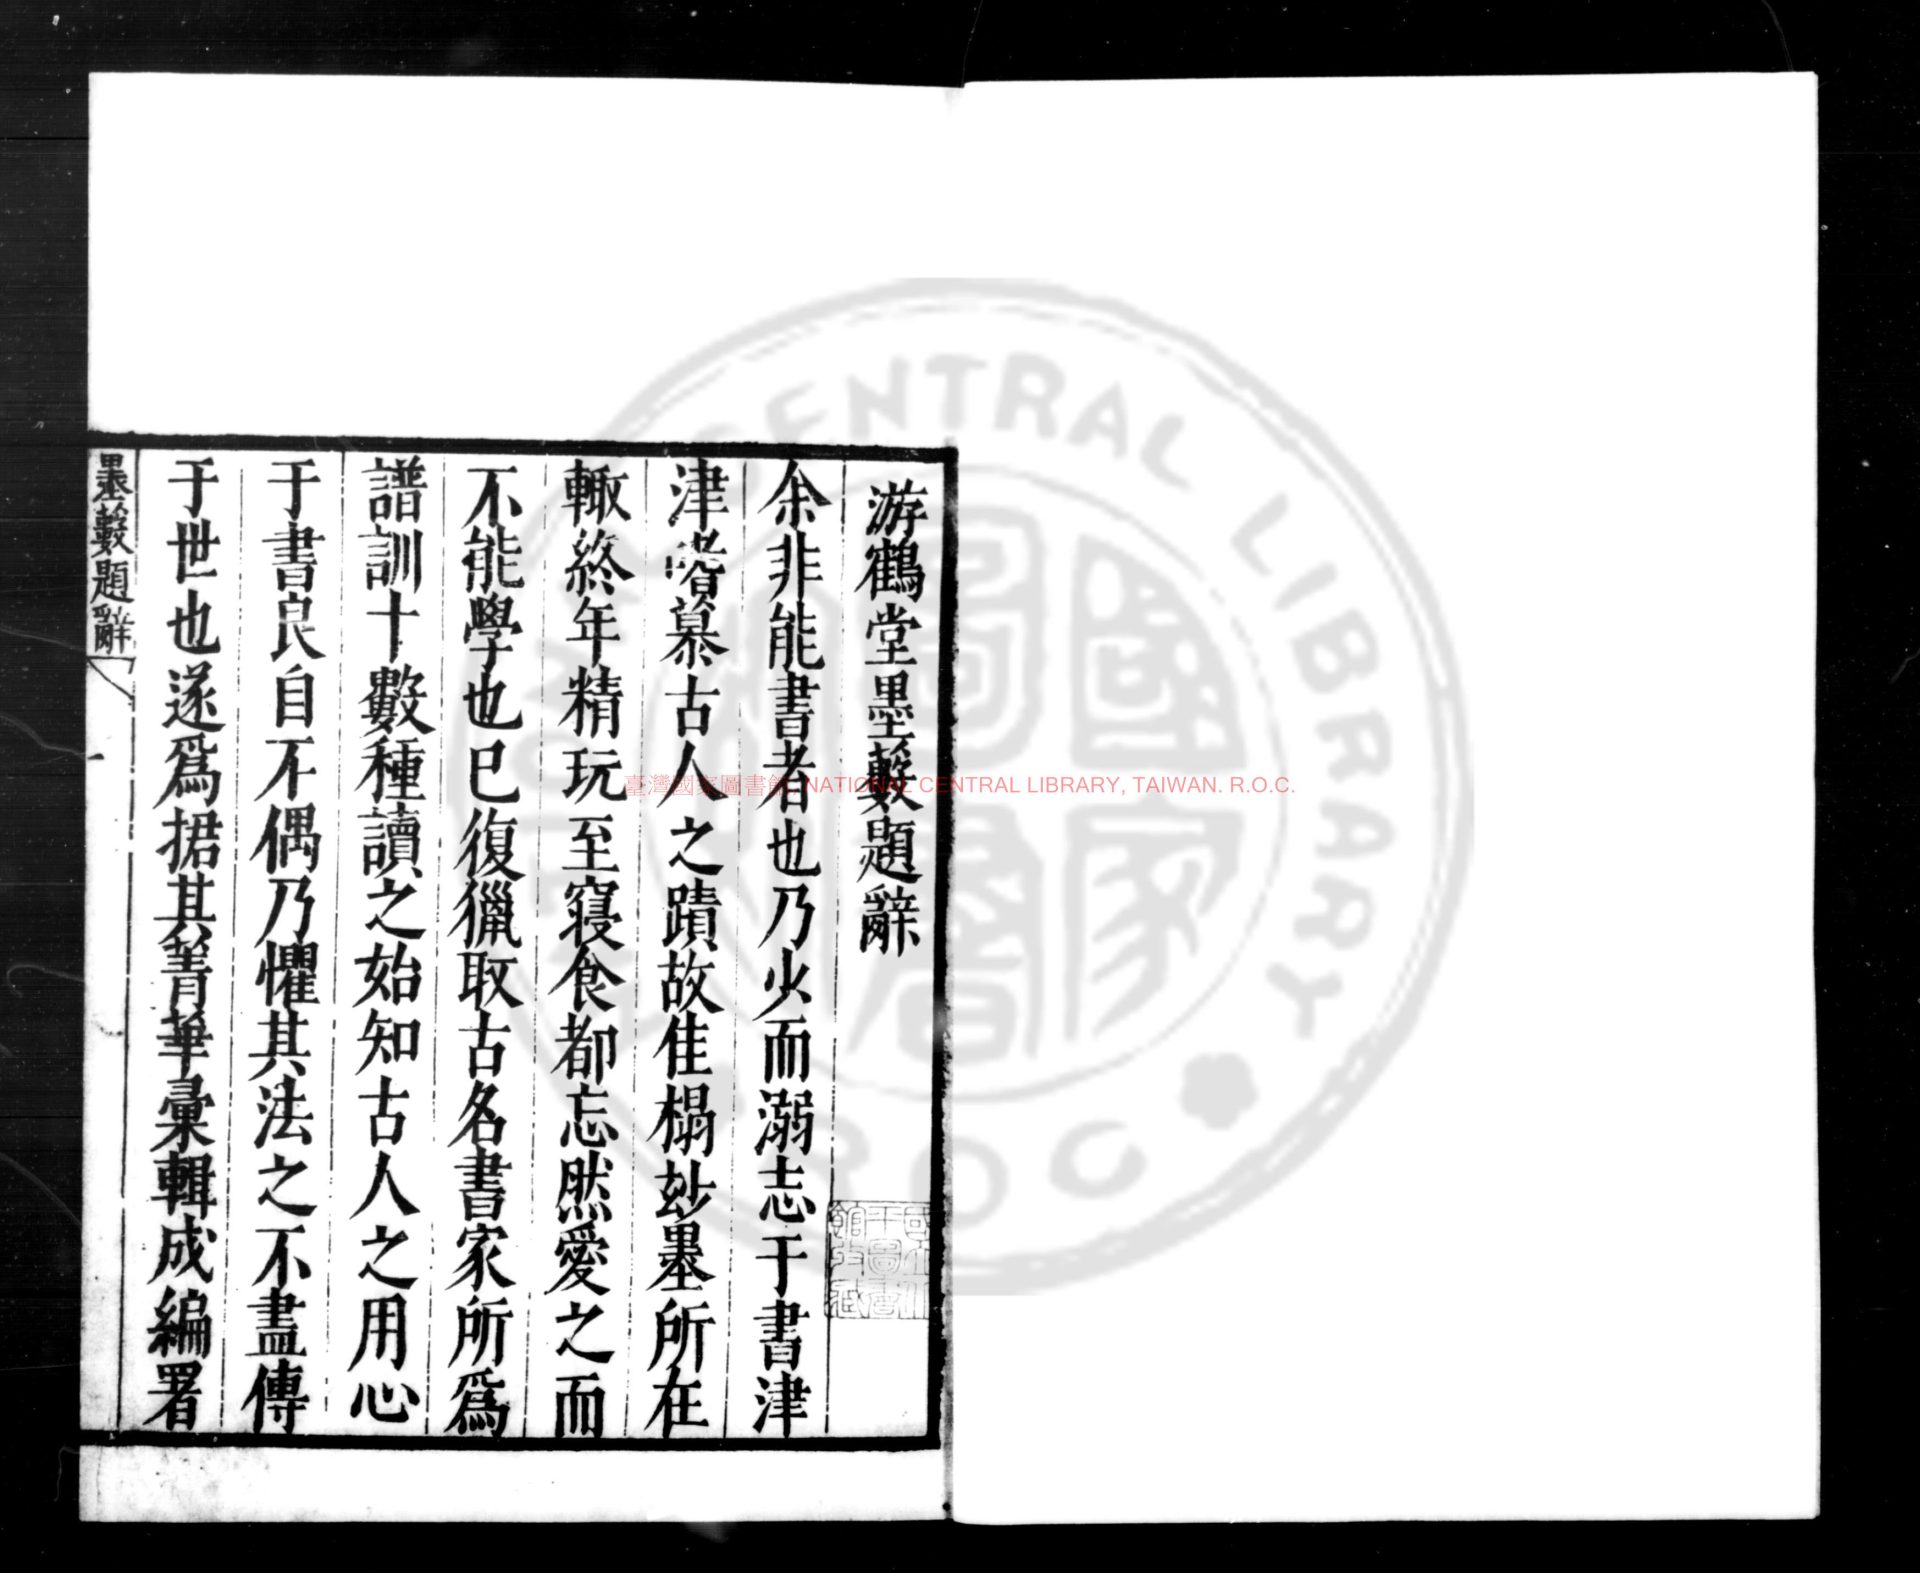 游鶴堂墨藪題辭
余非能書者也乃少而溺志于書津
津嗜慕古人之蹟故佳榻玅墨所在
輙終年精玩至寝食都忘然愛之而
不能學也已復獵取古名書家所爲
譜訓十數種讀之始知古人之用心
于書良自不偶乃懼其法之不盡傳
于世也遂爲据其菁華彙輯成編署
墨藪題辭
一
臺灣國家圖書館, NATIONAL CENTRAL LIBRARY, TAIWAN. R.O.C.
CENTRAL LIBRARY
國家圖書
R.O.C